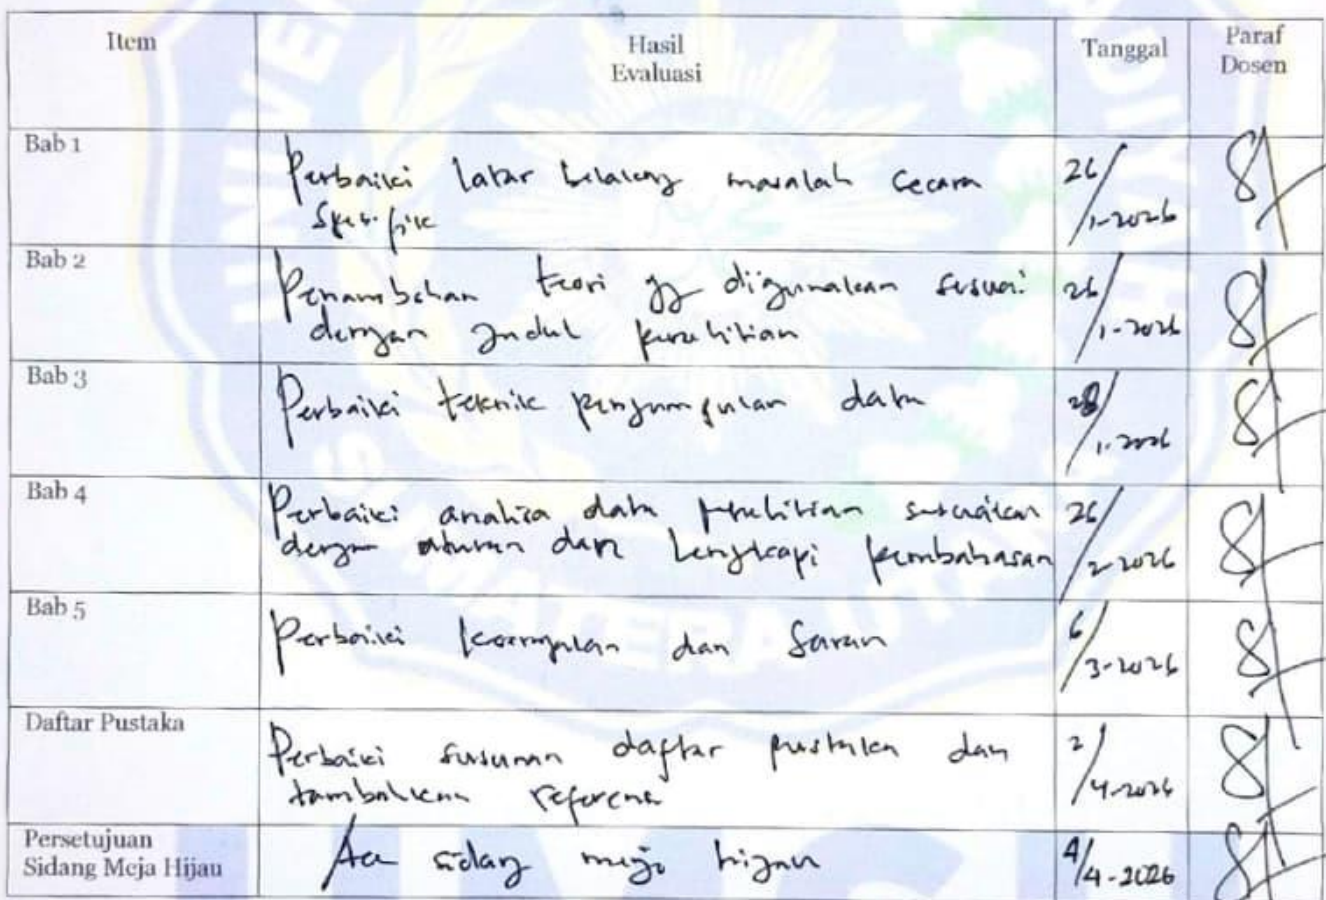 Item
Hasil
Evaluasi
Tanggal
Paraf
Dosen
Bab 1
Perbaiki latar belakang masalah secara
spesifik
26/1-2026
Bab 2
Penambahan teori yg digunakan sesuai
dengan judul penelitian
26/1-2026
Bab 3
Perbaiki teknik pengumpulan data
28/1-2026
Bab 4
Perbaiki analisa data penelitian sesuaikan
dengan aturan dan lengkapi pembahasan
26/2-2026
Bab 5
Perbaiki kesimpulan dan saran
6/3-2026
Daftar Pustaka
Perbaiki susunan daftar pustaka dan
tambahkan referensi
2/4-2026
Persetujuan
Sidang Meja Hijau
Acc sidang meja hijau
4/4-2026